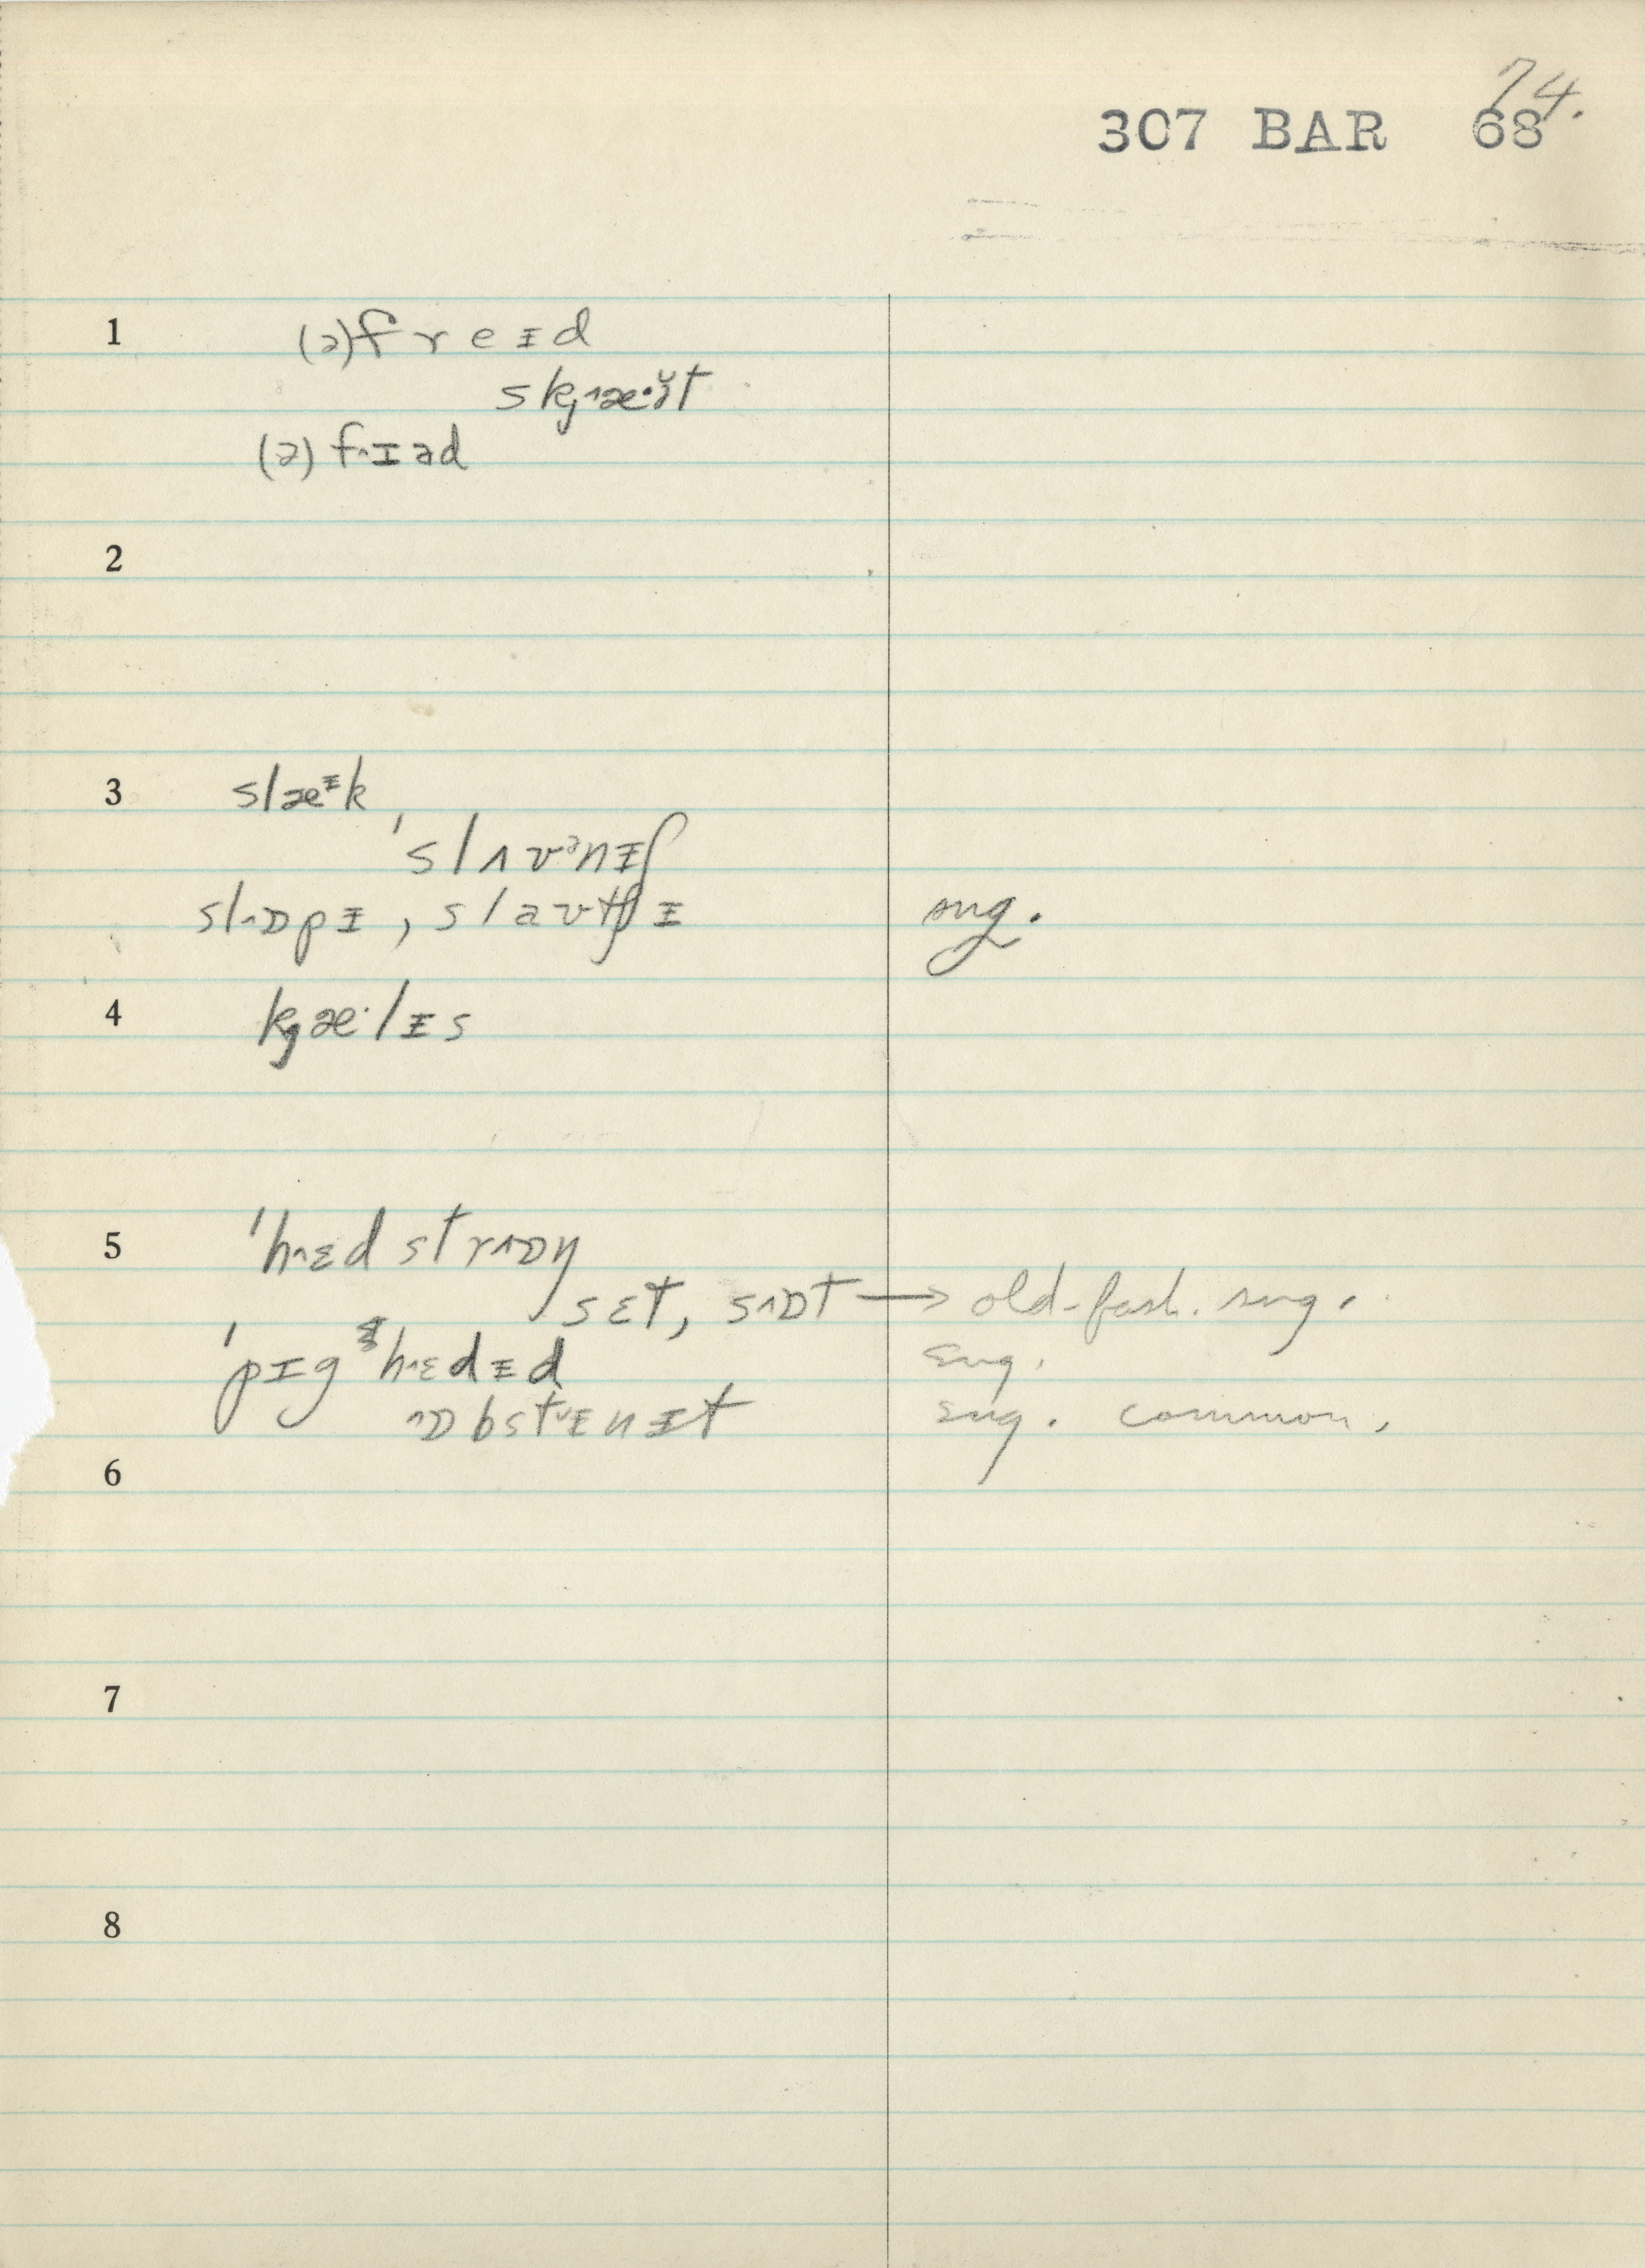 74.
307 BAR 68
1 (ə)f r e ɪ d
skj˄æ·ɚ̆t
(ə) f˄ɪəd
2
3 slæᶦk
'slʌvᵊnɪʃ
sl˄ɒpɪ, slavtʃɪ sug.
4 kjæ·lɪs
5 'h˄ɛd str˄ɒŋ
sɛt, s˄ɒt → old-fash. sug.
'pɪg h˄ɛdɪd sug.
˄ɒbst˅ɪnɪt sug. common.
6
7
8